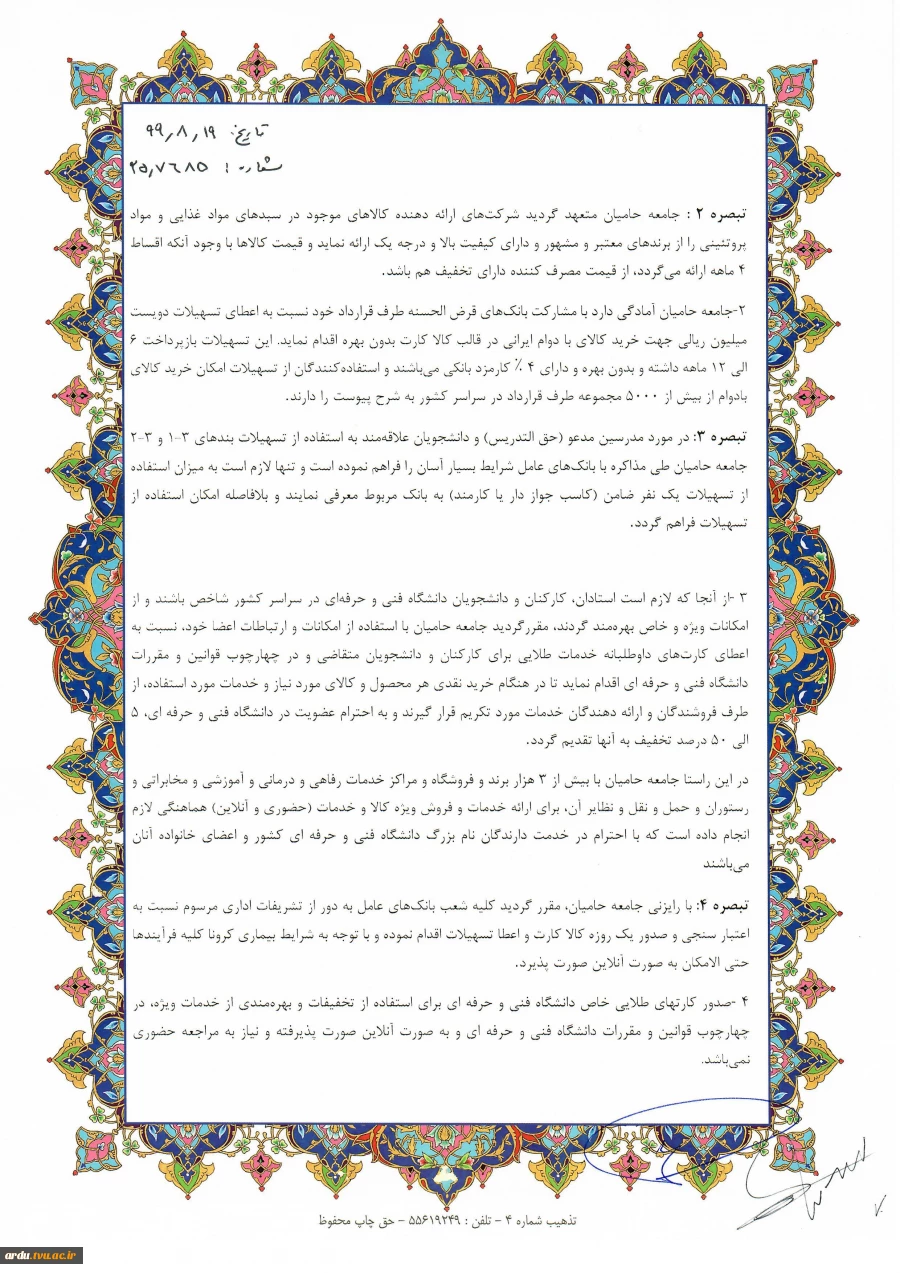 تاریخ: ۹۹٫۸٫۱۹
شماره: ۲۵٫۷۶۸۵
تبصره ۲ : جامعه حامیان متعهد گردید شرکت‌های ارائه دهنده کالاهای موجود در سبدهای مواد غذایی و مواد
پروتئینی را از برندهای معتبر و مشهور و دارای کیفیت بالا و درجه یک ارائه نماید و قیمت کالاها با وجود آنکه اقساط
۴ ماهه ارائه می‌گردد، از قیمت مصرف کننده دارای تخفیف هم باشد.
۲-جامعه حامیان آمادگی دارد با مشارکت بانک‌های قرض الحسنه طرف قرارداد خود نسبت به اعطای تسهیلات دویست
میلیون ریالی جهت خرید کالای با دوام ایرانی در قالب کالا کارت بدون بهره اقدام نماید. این تسهیلات بازپرداخت ۶
الی ۱۲ ماهه داشته و بدون بهره و دارای ۴ ٪ کارمزد بانکی می‌باشند و استفاده‌کنندگان از تسهیلات امکان خرید کالای
بادوام از بیش از ۵۰۰۰ مجموعه طرف قرارداد در سراسر کشور به شرح پیوست را دارند.
تبصره ۳: در مورد مدرسین مدعو (حق التدریس) و دانشجویان علاقه‌مند به استفاده از تسهیلات بندهای ۳-۱ و ۳-۲
جامعه حامیان طی مذاکره با بانک‌های عامل شرایط بسیار آسان را فراهم نموده است و تنها لازم است به میزان استفاده
از تسهیلات یک نفر ضامن (کاسب جواز دار یا کارمند) به بانک مربوط معرفی نمایند و بلافاصله امکان استفاده از
تسهیلات فراهم گردد.
۳ -از آنجا که لازم است استادان، کارکنان و دانشجویان دانشگاه فنی و حرفه‌ای در سراسر کشور شاخص باشند و از
امکانات ویژه و خاص بهره‌مند گردند، مقررگردید جامعه حامیان با استفاده از امکانات و ارتباطات اعضا خود، نسبت به
اعطای کارت‌های داوطلبانه خدمات طلایی برای کارکنان و دانشجویان متقاضی و در چهارچوب قوانین و مقررات
دانشگاه فنی و حرفه ای اقدام نماید تا در هنگام خرید نقدی هر محصول و کالای مورد نیاز و خدمات مورد استفاده، از
طرف فروشندگان و ارائه دهندگان خدمات مورد تکریم قرار گیرند و به احترام عضویت در دانشگاه فنی و حرفه ای، ۵
الی ۵۰ درصد تخفیف به آنها تقدیم گردد.
در این راستا جامعه حامیان با بیش از ۳ هزار برند و فروشگاه و مراکز خدمات رفاهی و درمانی و آموزشی و مخابراتی و
رستوران و حمل و نقل و نظایر آن، برای ارائه خدمات و فروش ویژه کالا و خدمات (حضوری و آنلاین) هماهنگی لازم
انجام داده است که با احترام در خدمت دارندگان نام بزرگ دانشگاه فنی و حرفه ای کشور و اعضای خانواده آنان
می‌باشند
تبصره ۴: با رایزنی جامعه حامیان، مقرر گردید کلیه شعب بانک‌های عامل به دور از تشریفات اداری مرسوم نسبت به
اعتبار سنجی و صدور یک روزه کالا کارت و اعطا تسهیلات اقدام نموده و با توجه به شرایط بیماری کرونا کلیه فرآیندها
حتی الامکان به صورت آنلاین صورت پذیرد.
۴ -صدور کارتهای طلایی خاص دانشگاه فنی و حرفه ای برای استفاده از تخفیفات و بهره‌مندی از خدمات ویژه، در
چهارچوب قوانین و مقررات دانشگاه فنی و حرفه ای و به صورت آنلاین صورت پذیرفته و نیاز به مراجعه حضوری
نمی‌باشد.
تذهیب شماره ۴ - تلفن : ۵۵۶۱۹۲۴۹ - حق چاپ محفوظ
ardu.tvu.ac.ir